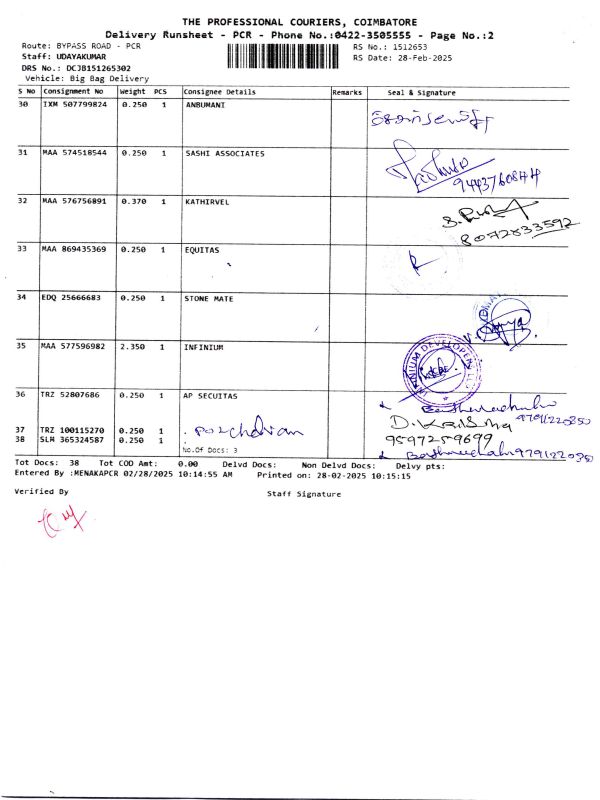 THE PROFESSIONAL COURIERS, COIMBATORE
Delivery Runsheet - PCR - Phone No.:0422-3505555 - Page No.:2
Route: BYPASS ROAD - PCR RS No.: 1512653
Staff: UDAYAKUMAR RS Date: 28-Feb-2025
DRS No.: DCJB151265302
Vehicle: Big Bag Delivery
S No Consignment No Weight PCS Consignee Details Remarks Seal & Signature
30 IXM 507799824 0.250 1 ANBUMANI
31 MAA 574518544 0.250 1 SASHI ASSOCIATES
9443760844
32 MAA 576756891 0.370 1 KATHIRVEL
8072833592
33 MAA 869435369 0.250 1 EQUITAS
34 EDQ 25666683 0.250 1 STONE MATE
35 MAA 577596982 2.350 1 INFINIUM
36 TRZ 52807686 0.250 1 AP SECUITAS
37 TRZ 100115270 0.250 1 D. Krishna
38 SLM 365324587 0.250 1 9597259699
No.Of Docs: 3
Tot Docs: 38 Tot COD Amt: 0.00 Delvd Docs: Non Delvd Docs: Delvy pts:
Entered By :MENAKAPCR 02/28/2025 10:14:55 AM Printed on: 28-02-2025 10:15:15
Verified By Staff Signature